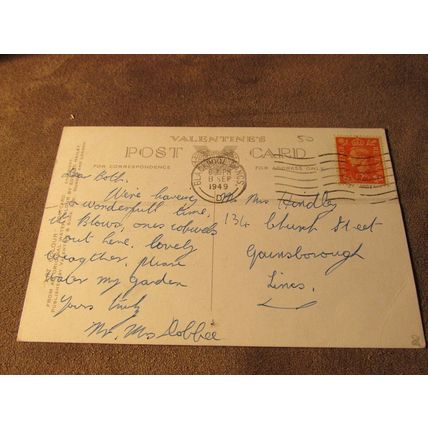 VALENTINE'S
50
POST CARD
FOR CORRESPONDENCE
FOR ADDRESS ONLY
BLACKPOOL
PM
8 SEP
1949
LANCS.
Dear Both.
We're having
a wonderfull time,
it Blows, ones cobwebs
out here. lovely
weather. please
water my garden
Yours truly
Mr. Ms Dobbee
Mr Mrs Hindley
134 Church Street
Gainsborough
Lincs.